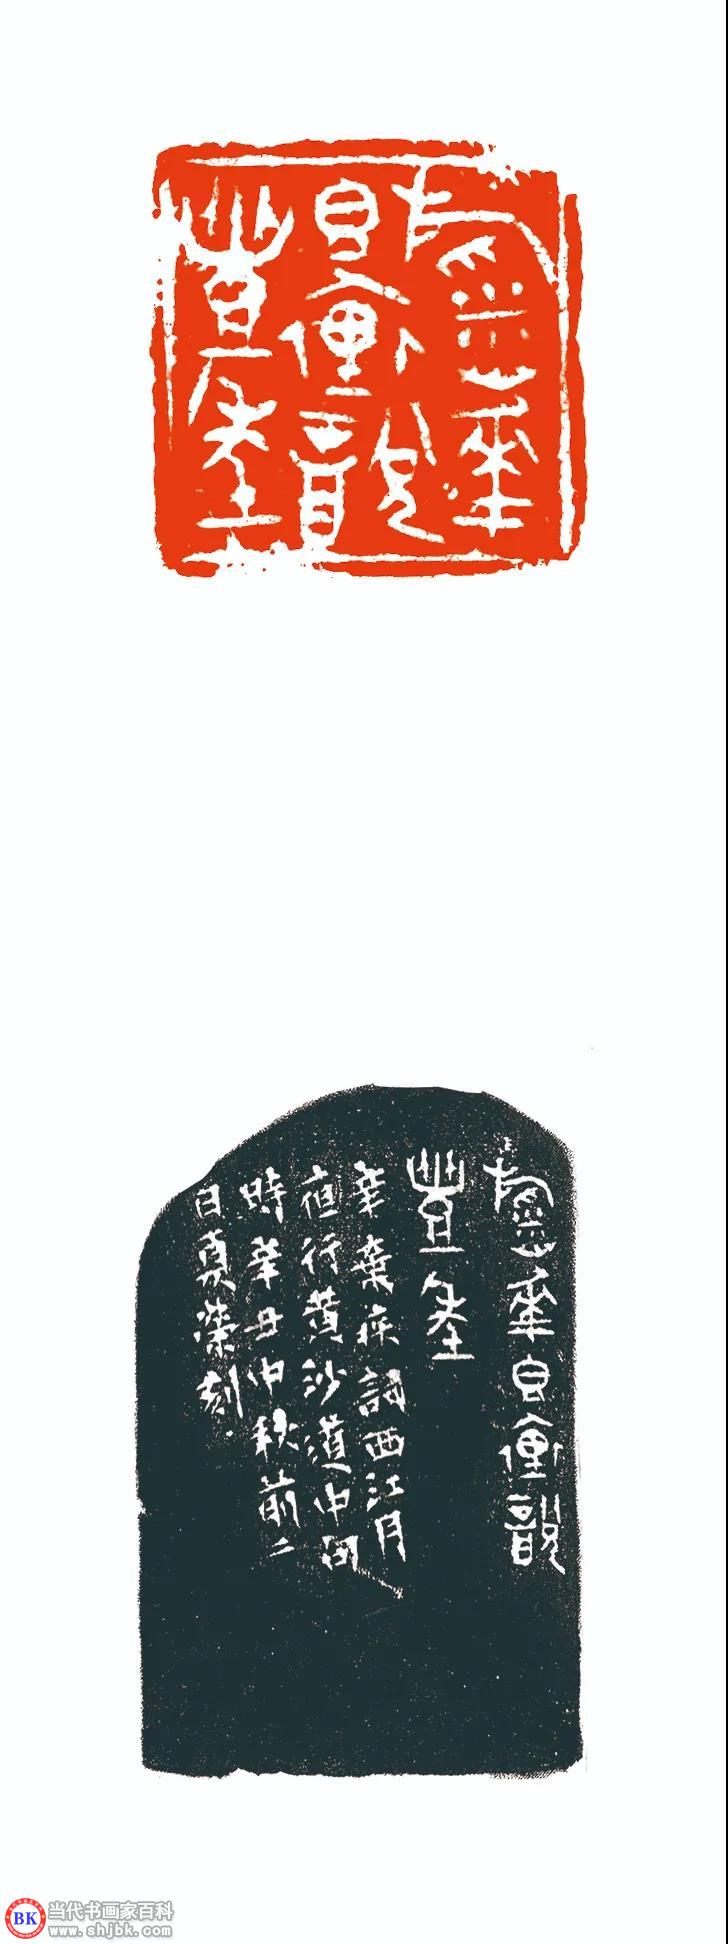 稻華
香裏說
豐年
稻華香裏說
豐年
辛棄疾詞西江月
夜行黄沙道中句
時辛丑中秋前二
日榮刻
BK 当代书画家百科
www.shjbk.com